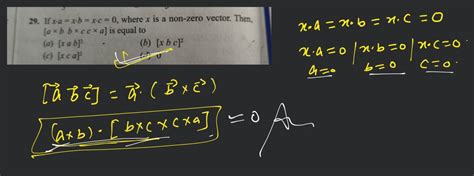 29. If x·a = x·b = x·c = 0, where x is a non-zero vector. Then,
[a × b b × c c × a] is equal to
(a) [x a b]² (b) [x b c]²
(c) [x c a]² 0
x·a = x·b = x·c = 0
x·a=0 | x·b=0 | x·c=0
a=0 b=0 c=0
[a⃗ b⃗ c⃗] = a⃗ · (b⃗ × c⃗)
(a×b) · [b×c × c×a] = 0